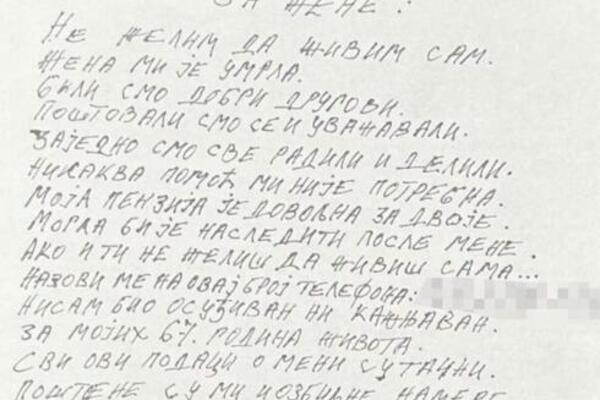 ЗА ЖЕНЕ:
НЕ ЖЕЛИМ ДА ЖИВИМ САМ.
ЖЕНА МИ ЈЕ УМРЛА.
БИЛИ СМО ДОБРИ ДРУГОВИ.
ПОШТОВАЛИ СМО СЕ И УВАЖАВАЛИ.
ЗАЈЕДНО СМО СВЕ РАДИЛИ И ДЕЛИЛИ.
НИКАКВА ПОМОЋ МИ НИЈЕ ПОТРЕБНА.
МОЈА ПЕНЗИЈА ЈЕ ДОВОЉНА ЗА ДВОЈЕ.
МОГЛА БИ ЈЕ НАСЛЕДИТИ ПОСЛЕ МЕНЕ.
АКО И ТИ НЕ ЖЕЛИШ ДА ЖИВИШ САМА...
НАЗОВИ МЕ НА ОВАЈ БРОЈ ТЕЛЕФОНА:
НИСАМ БИО ОСУЂИВАН НИ КАЖЊАВАН.
ЗА МОЈИХ 67. ГОДИНА ЖИВОТА.
СВИ ОВИ ПОДАЦИ О МЕНИ СУ ТАЧНИ.
ПОШТЕНЕ СУ МИ И ОЗБИЉНЕ НАМЕРЕ